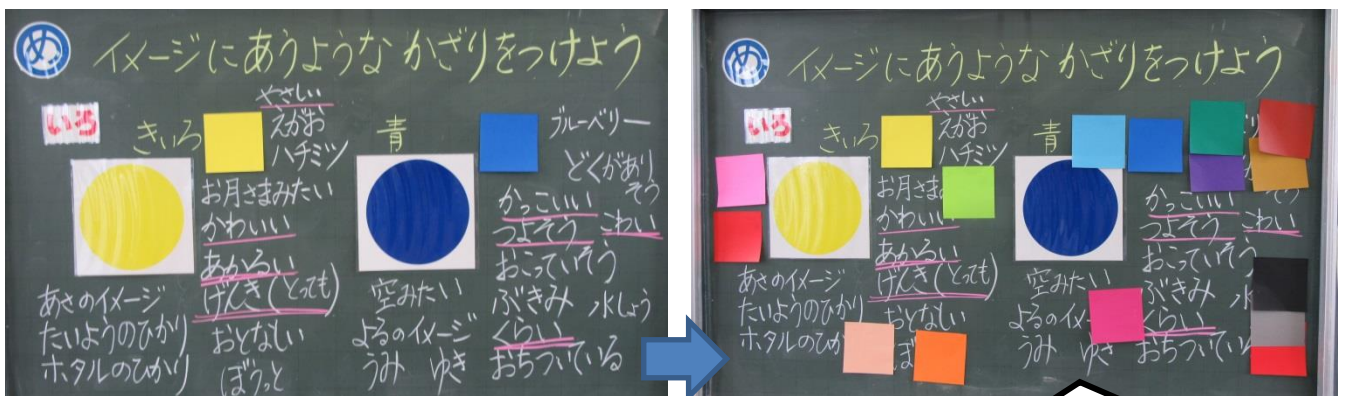 め イメージにあうような かざりをつけよう
いろ
きいろ
やさしい
えがお
ハチミツ
お月さまみたい
かわいい
あかるい
げんき(とっても)
おとなしい
ぼうっと
あさのイメージ
たいようのひかり
ホタルのひかり
青
ブルーベリー
どくがあり
そう
かっこいい
つよそう
こわい
おこっていそう
ぶきみ
水しょう
くらい
おちついている
空みたい
よるのイメージ
うみ ゆき
め イメージにあうような かざりをつけよう
いろ
きいろ
やさしい
えがお
ハチミツ
お月さま
かわいい
あかるい
げんき(とっても)
おとなしい
ぼ
あさのイメージ
たいようのひかり
ホタルのひか
青
そう
かっこいい
つよそう
こわい
おこっていそう
ぶきみ
水
くらい
おちついてい
空みたい
よるのイメ
うみ ゆき